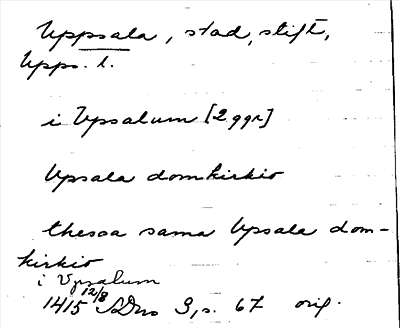 Uppsala, stad, stift,
Upps. l.
i Vpsalum [2 ggr]
Vpsala domkirkio
thessa sama Vpsala dom-
kirkio
i Vpsalum
1415 12/8 SDns 3, s. 67 orig.